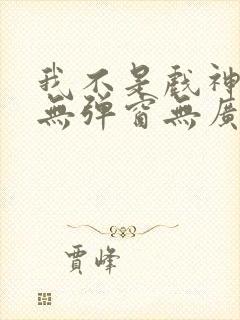 我不是戲神
無彈窗無廣
賈峰